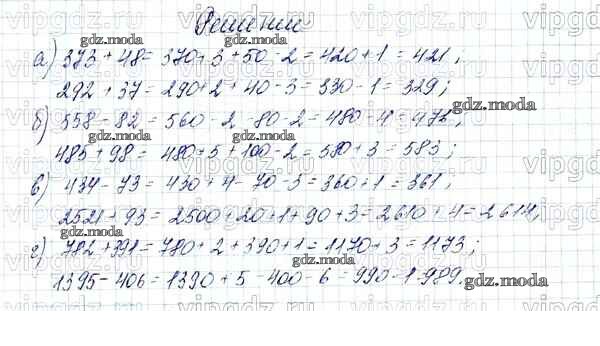 Решение
а) 373 + 48 = 370 + 3 + 50 - 2 = 420 + 1 = 421;
292 + 37 = 290 + 2 + 40 - 3 = 330 - 1 = 329;
б) 558 - 82 = 560 - 2 - 80 - 2 = 480 - 4 = 476;
485 + 98 = 480 + 5 + 100 - 2 = 580 + 3 = 583;
в) 434 - 73 = 430 + 4 - 70 - 3 = 360 + 1 = 361,
2521 + 93 = 2500 + 20 + 1 + 90 + 3 = 2610 + 4 = 2614,
г) 782 + 391 = 780 + 2 + 390 + 1 = 1170 + 3 = 1173;
1395 - 406 = 1390 + 5 - 400 - 6 = 990 - 1 = 989.
gdz.moda
vipgdz